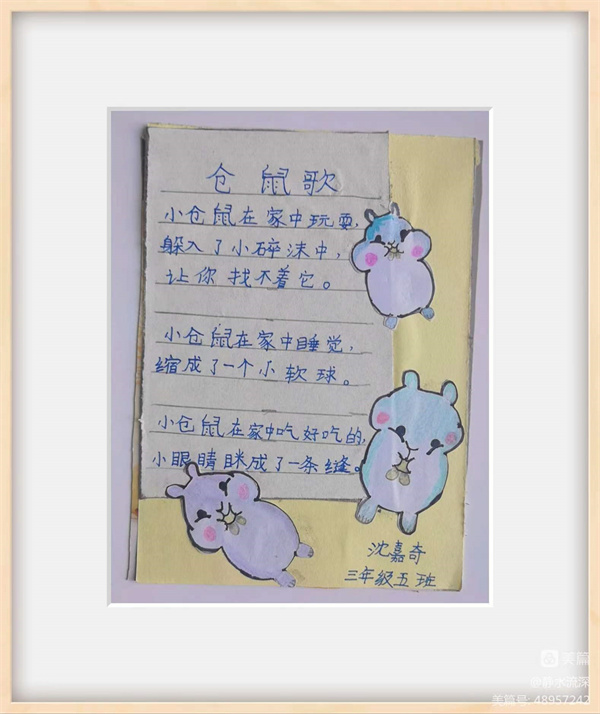 仓鼠歌
小仓鼠在家中玩耍,
躲入了小碎沫中,
让你找不着它。
小仓鼠在家中睡觉,
缩成了一个小软球。
小仓鼠在家中吃好吃的,
小眼睛眯成了一条缝。
沈嘉奇
三年级五班
美篇
@静水流深
美篇号: 48957242